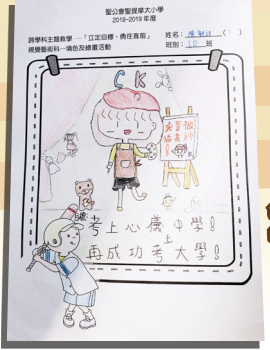 聖公會聖提摩太小學
2018-2019 年度
跨學科主題教學 — 「立定目標、勇往直前」
視覺藝術科—填色及繪畫活動
姓名:
( )
班別: 班
C K
考上心儀中學!
再成功考上大學!